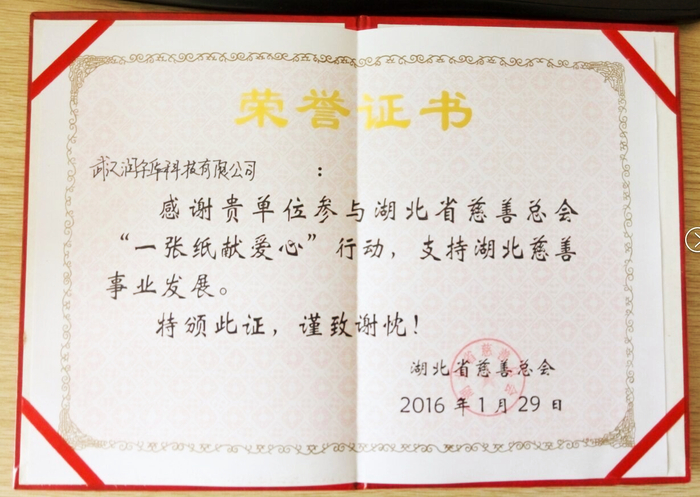 荣誉证书
武汉润年华科技有限公司：
感谢贵单位参与湖北省慈善总会
“一张纸献爱心”行动，支持湖北慈善
事业发展。
特颁此证，谨致谢忱！
湖北省慈善总会
2016 年 1 月 29 日